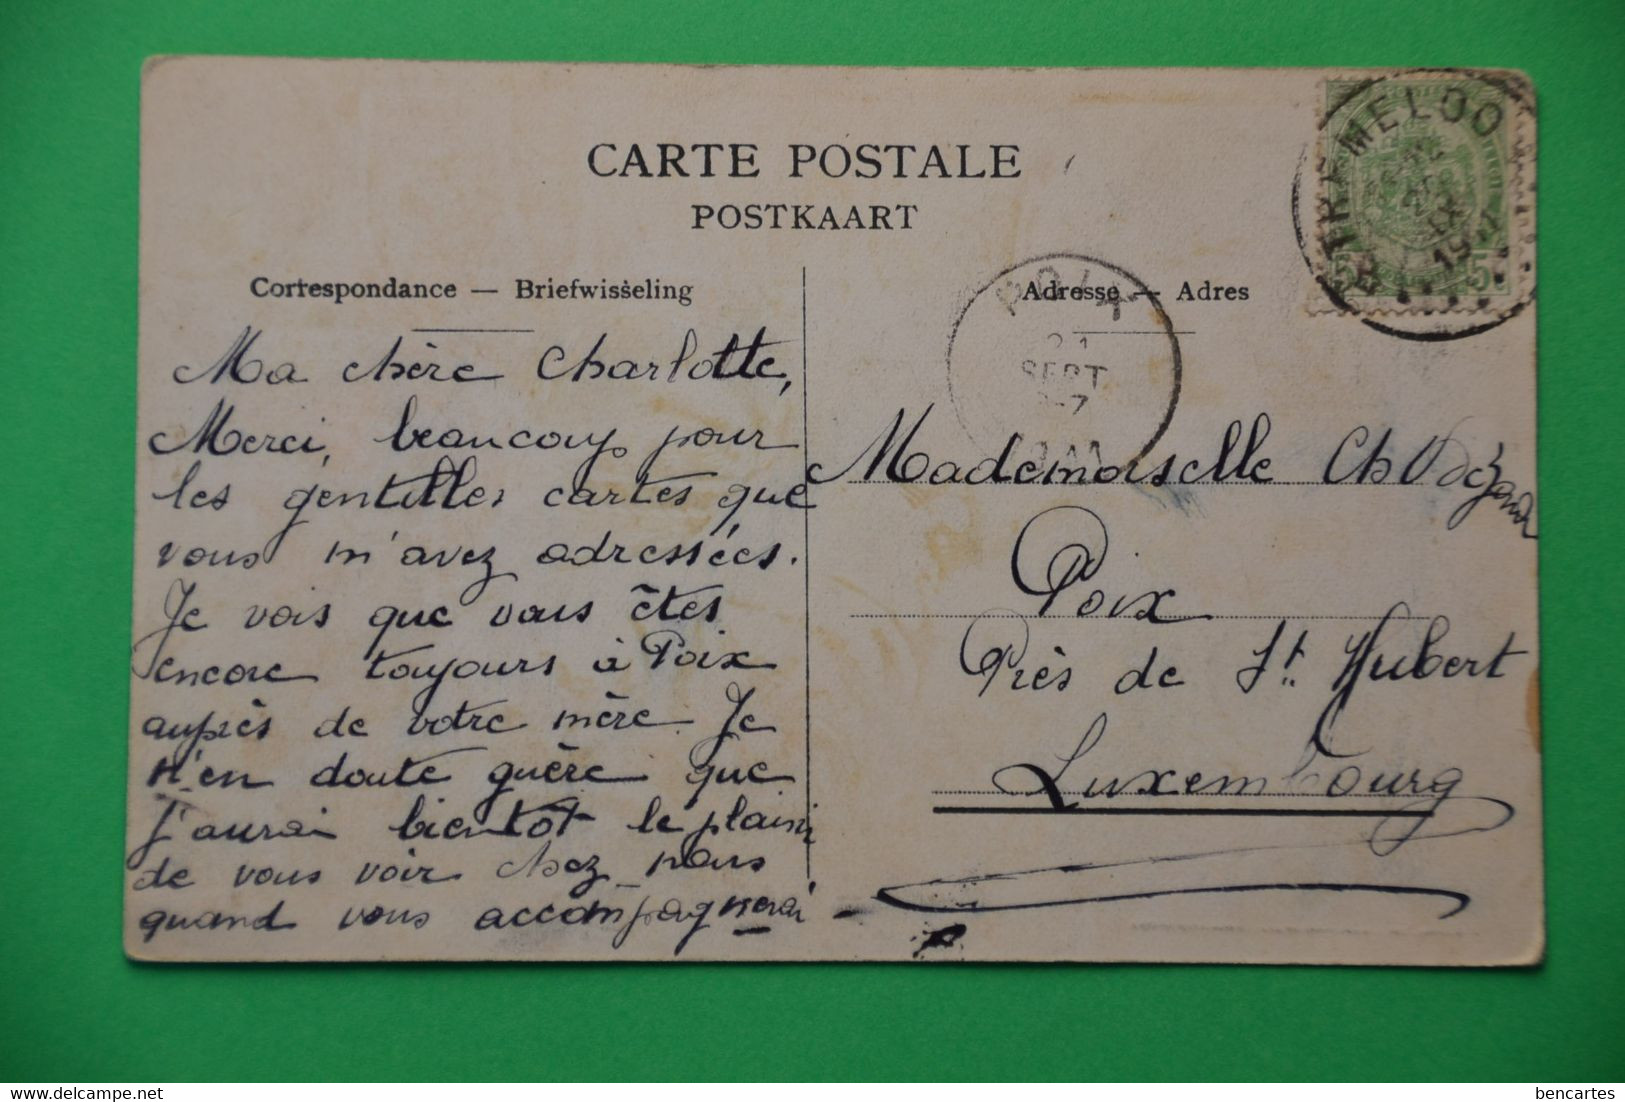 CARTE POSTALE
POSTKAART
Correspondance — Briefwisseling
Ma chère Charlotte,
Merci, beaucoup pour
les gentilles cartes que
vous m'avez adressées.
Je vois que vous êtes
encore toujours à Poix
auprès de votre mère. Je
n'en doute guère que
j'aurai bientôt le plaisir
de vous voir chez nous
quand vous accompagnerai
Adresse — Adres
Mademoiselle Ch
Poix
Près de St. Hubert
Luxembourg
TREMELOO
5 5
POIX
21
SEPT
bencartes